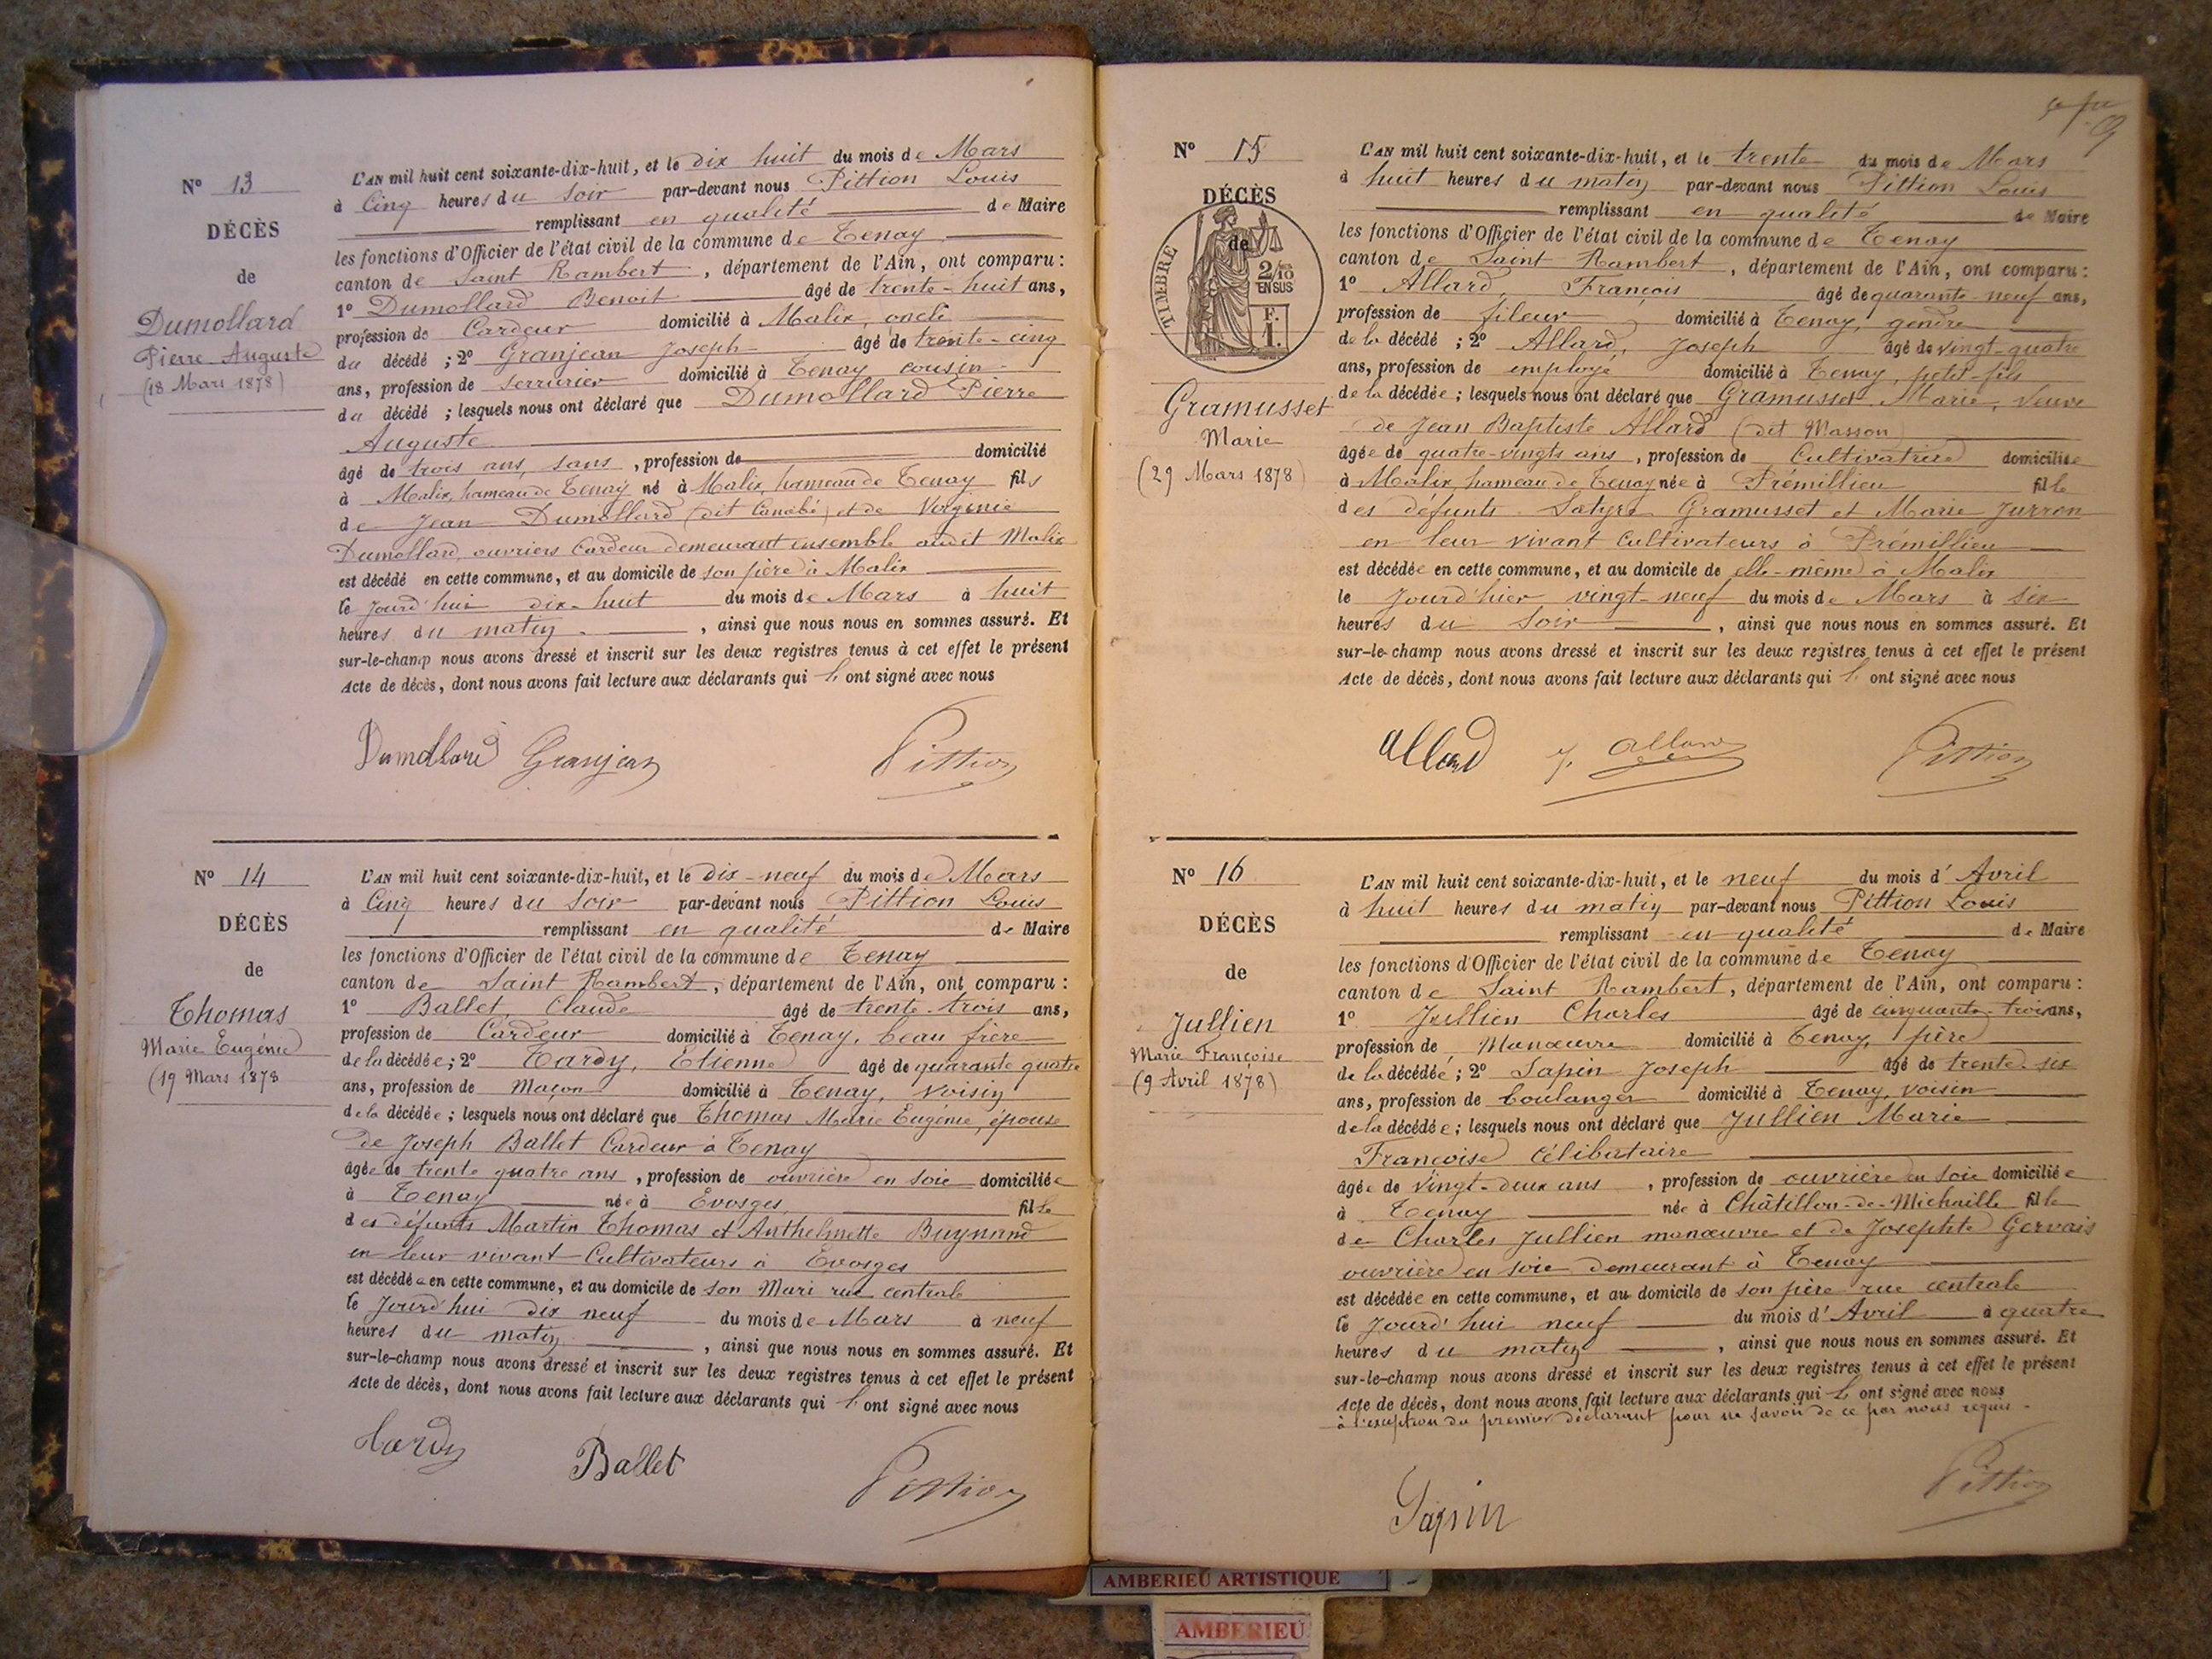 Nº 13
DÉCÈS
de
Dumollard
Pierre Auguste
(18 Mars 1878)
L'AN mil huit cent soixante-dix-huit, et le dix huit du mois de Mars
à Cinq heures du soir par-devant nous Pittion Louis
remplissant en qualité de Maire
les fonctions d'Officier de l'état civil de la commune de Tenay
canton de Saint Rambert, département de l'Ain, ont comparu :
1º Dumollard Benoit âgé de trente-huit ans,
profession de Cardeur domicilié à Malix, oncle
du décédé ; 2º Granjean Joseph âgé de trente-cinq
ans, profession de serrurier domicilié à Tenay cousin
du décédé ; lesquels nous ont déclaré que Dumollard Pierre
Auguste
âgé de trois ans, sans, profession de domicilié
à Malix, hameau de Tenay né à Malix, hameau de Tenay fils
de Jean Dumollard (dit Canabé) et de Virginie
Dumollard, ouvriers Cardeur demeurant ensemble audit Malix
est décédé en cette commune, et au domicile de son père à Malix
le jourd'hui dix-huit du mois de Mars à huit
heures du matin, ainsi que nous nous en sommes assuré. Et
sur-le-champ nous avons dressé et inscrit sur les deux registres tenus à cet effet le présent
Acte de décès, dont nous avons fait lecture aux déclarants qui l'ont signé avec nous
Dumollard Granjean Pittion
Nº 14
DÉCÈS
de
Thomas
Marie Eugénie
(19 Mars 1878
L'AN mil huit cent soixante-dix-huit, et le dix-neuf du mois de Mars
à Cinq heures du soir par-devant nous Pittion Louis
remplissant en qualité de Maire
les fonctions d'Officier de l'état civil de la commune de Tenay
canton de Saint Rambert, département de l'Ain, ont comparu :
1º Ballet, Claude âgé de trente-trois ans,
profession de Cardeur domicilié à Tenay, beau frère
de la décédée ; 2º Tardy, Etienne âgé de quarante quatre
ans, profession de Maçon domicilié à Tenay, voisin
de la décédée ; lesquels nous ont déclaré que Thomas Marie Eugénie, épouse
de Joseph Ballet Cardeur à Tenay
âgée de trente quatre ans, profession de ouvrière en soie domiciliée
à Tenay née à Evosges fille
des défunts Martin Thomas et Anthelmette Buynand
en leur vivant Cultivateurs à Evosges
est décédée en cette commune, et au domicile de son Mari rue centrale
le jourd'hui dix neuf du mois de Mars à neuf
heures du matin, ainsi que nous nous en sommes assuré. Et
sur-le-champ nous avons dressé et inscrit sur les deux registres tenus à cet effet le présent
Acte de décès, dont nous avons fait lecture aux déclarants qui l'ont signé avec nous
Tardy Ballet Pittion
Nº 15
DÉCÈS
de
TIMBRE
2/10
EN SUS
F.
1.
Gramusset
Marie
(29 Mars 1878)
L'AN mil huit cent soixante-dix-huit, et le trente du mois de Mars
à huit heures du matin par-devant nous Pittion Louis
remplissant en qualité de Maire
les fonctions d'Officier de l'état civil de la commune de Tenay
canton de Saint Rambert, département de l'Ain, ont comparu :
1º Allard, François âgé de quarante-neuf ans,
profession de fileur domicilié à Tenay, gendre
de la décédé ; 2º Allard, Joseph âgé de vingt-quatre
ans, profession de employé domicilié à Tenay, petit-fils
de la décédée ; lesquels nous ont déclaré que Gramusset Marie, Veuve
de Jean Baptiste Allard (dit Masson)
âgée de quatre-vingts ans, profession de Cultivatrice domiciliée
à Malix, hameau de Tenay née à Prémillieu fille
des défunts Satyre Gramusset et Marie Jurron
en leur vivant Cultivateurs à Prémillieu
est décédée en cette commune, et au domicile de elle-même à Malix
le jourd'hier vingt-neuf du mois de Mars à six
heures du soir, ainsi que nous nous en sommes assuré. Et
sur-le-champ nous avons dressé et inscrit sur les deux registres tenus à cet effet le présent
Acte de décès, dont nous avons fait lecture aux déclarants qui l'ont signé avec nous
Allard J. Allard Pittion
Nº 16
DÉCÈS
de
Jullien
Marie Françoise
(9 Avril 1878)
L'AN mil huit cent soixante-dix-huit, et le neuf du mois d'Avril
à huit heures du matin par-devant nous Pittion Louis
remplissant en qualité de Maire
les fonctions d'Officier de l'état civil de la commune de Tenay
canton de Saint Rambert, département de l'Ain, ont comparu :
1º Jullien Charles âgé de cinquante-trois ans,
profession de Manœuvre domicilié à Tenay, père
de la décédée ; 2º Sapin Joseph âgé de trente-six
ans, profession de boulanger domicilié à Tenay, voisin
de la décédée ; lesquels nous ont déclaré que Jullien Marie
Françoise Célibataire
âgée de vingt-deux ans, profession de ouvrière en soie domiciliée
à Tenay née à Châtillon-de-Michaille fille
de Charles Jullien manœuvre et de Josephte Gervais
ouvrière en soie demeurant à Tenay
est décédée en cette commune, et au domicile de son père rue centrale
le jourd'hui neuf du mois d'Avril à quatre
heures du matin, ainsi que nous nous en sommes assuré. Et
sur-le-champ nous avons dressé et inscrit sur les deux registres tenus à cet effet le présent
Acte de décès, dont nous avons fait lecture aux déclarants qui l'ont signé avec nous
à l'exception du premier déclarant pour ne savoir de ce par nous requis.
Sapin Pittion
AMBERIEU ARTISTIQUE
AMBERIEU